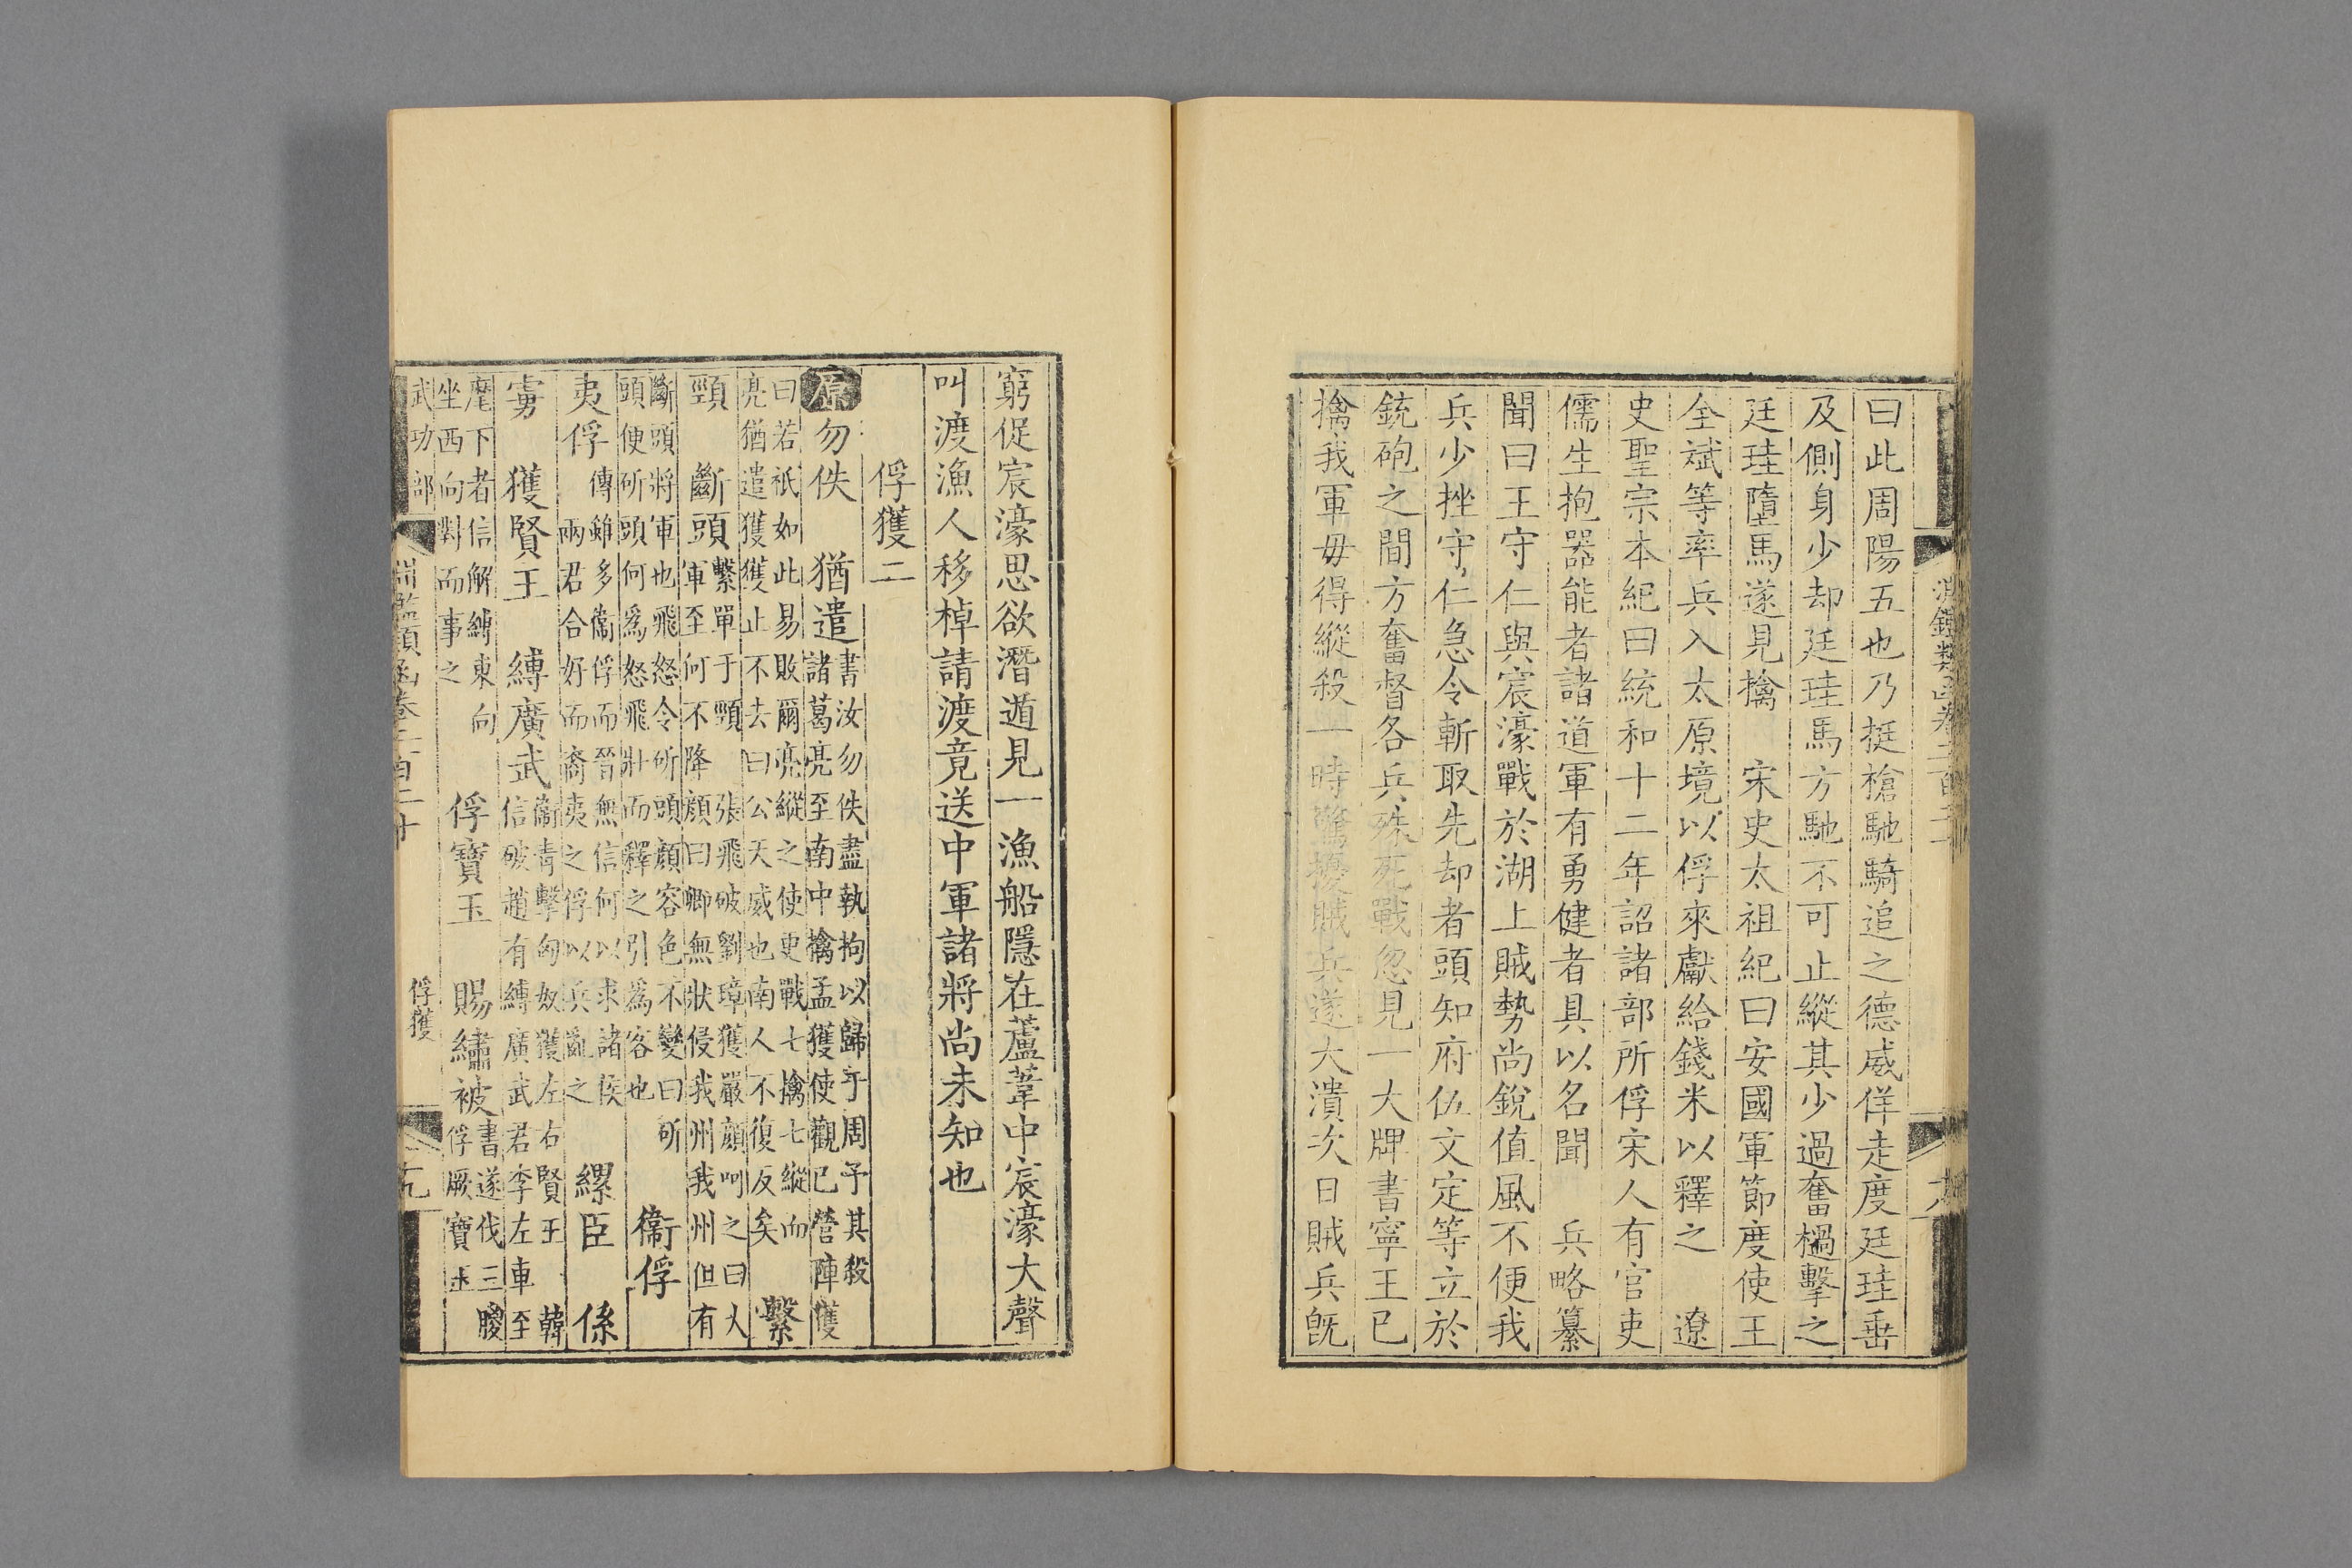 曰此周陽五也乃挺槍馳騎追之德威佯走度廷珪垂
及側身少却廷珪馬方馳不可止縱其少過奮檛擊之
廷珪墮馬遂見擒　宋史太祖紀曰安國軍節度使王
全斌等率兵入太原境以俘來獻給錢米以釋之　遼
史聖宗本紀曰統和十二年詔諸部所俘宋人有官吏
儒生抱器能者諸道軍有勇健者具以名聞　兵略纂
聞曰王守仁與宸濠戰於湖上賊勢尚銳值風不便我
兵少挫守仁急令斬取先却者頭知府伍文定等立於
銃砲之間方奮督各兵殊死戰忽見一大牌書寧王已
擒我軍毋得縱殺一時驚擾賊兵遂大潰次日賊兵既
窮促宸濠思欲潛遁見一漁船隱在蘆葦中宸濠大聲
叫渡漁人移棹請渡竟送中軍諸將尚未知也
俘獲二
原勿佚　猶遣書汝勿佚盡執拘以歸于周予其殺
諸葛亮至南中擒孟獲使觀已營陣獲
曰若祇如此易敗爾亮縱之使更戰七擒七縱而
亮猶遣獲獲止不去曰公天威也南人不復反矣　繫
頸　斷頭繫單于頸　張飛破劉璋獲嚴顏呵之曰大
軍至何不降　顏曰卿無狀侵我州我州但有
斷頭將軍也飛怒令斫頭顏容色不變曰斫
頭便斫頭何爲怒飛壯而釋之引爲客也　衞俘
夷俘傳雖多衞俘而晉無信何以求諸侯
兩君合好而裔夷之俘以兵亂之　纍臣　係
虜　獲賢王　縛廣武衞青擊匈奴獲左右賢王　韓
信破趙有縛廣武君李左車至
麾下者信解縛東向
坐西向對而事之　俘寶玉　賜繡被書遂伐三朡
俘厥寶玉
武功部
淵鑑類函卷二百二十
俘獲
九